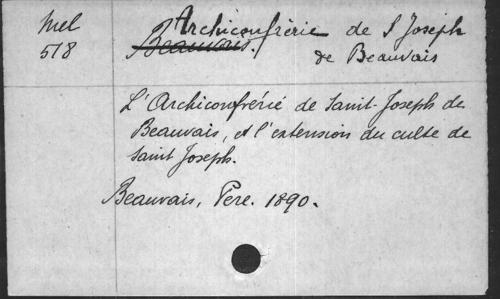 Mel
518
Archiconfrérie de S Joseph
Beauvais.
de Beauvais
L'Archiconfrérié de Saint-Joseph de
Beauvais, et l'extension du culte de
Saint Joseph.
Beauvais, Pere. 1890.